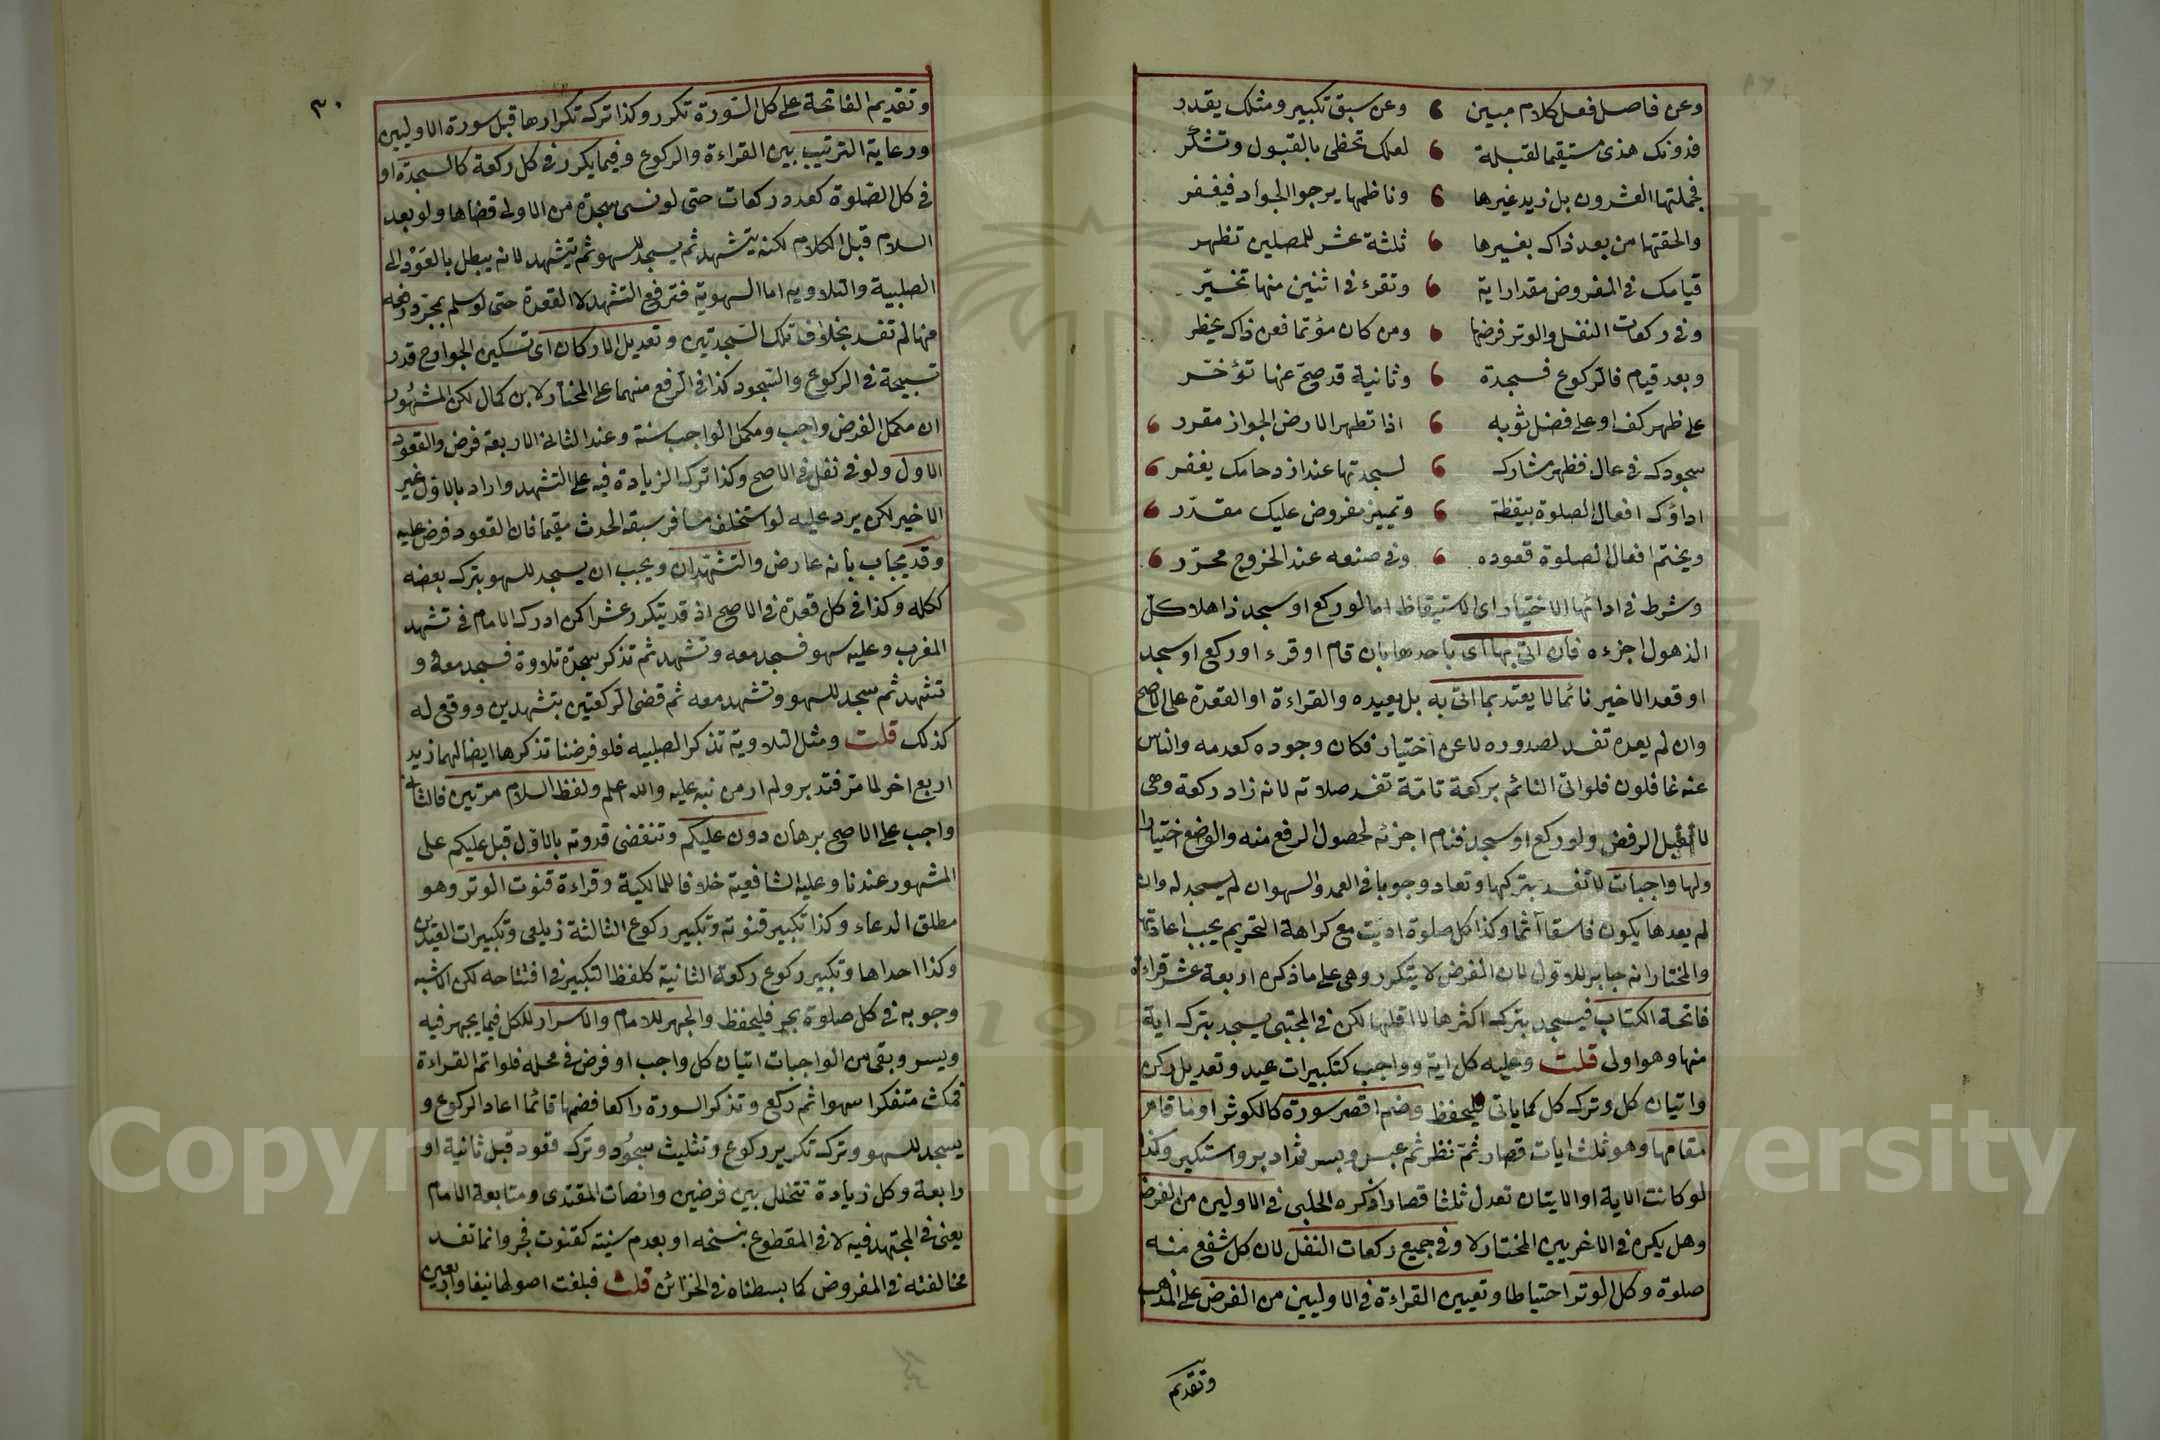 وعن فاصل فعل كلام مبين وعن سبق تكبير ومثلك يقدر
فدونك هذى مستقيما لقبلة لعلك تحظى بالقبول وتشكر
فجملتها العشرون بل زيد غيرها وناظمها يرجو الجواد فيغفر
والحقتها من بعد ذاك بغيرها ثلثة عشر للمصلين تظهر
قيامك فى المفروض مقدار اية وتقرء فى اثنين منها تخيّر
وفى ركعات النفل والوتر فرضها ومن كان مؤتما فعن ذاك يحظر
وبعد قيام فالركوع فسجدة وثانية قد صحّ عنها تؤخّر
على ظهر كف او على فضل ثوبه اذا تطهر الارض الجواز مقرر
سجودك فى عال فظهر مشارك لسجدتها عند ازدحامك يغفر
اداؤك افعال الصلوة بيقظة وتمييز مفروض عليك مقدّر
ويختم افعال الصلوة قعوده وفى صنعه عند الخروج محرّر
وشرط فى ادائها الاختيار اى الاستيقاظ اما لو ركع او سجد ذاهلا كل
الذهول اجزءه فان اتى بها اى باحدها بان قام او قرء او ركع او سجد
او قعد الاخير نائما لا يعتد بما اتى به بل يعيده والقراءة او القعدة على الاصح
وان لم يعده تفسد لصدوره لا عن اختيار فكان وجوده كعدمه والناس
عنه غافلون فلو اتى النائم بركعة تامّة تفسد صلاته لانه زاد ركعة وهى
لا تقبل الرفض ولو ركع او سجد فنام اجزئه لحصول الرفع منه والوضع اختيارا
ولها واجبات لا تفسد بتركها وتعاد وجوبا فى العمد والسهو ان لم يسجد له وان
لم يعدها يكون فاسقا آثما وكذا كل صلوة اديت مع كراهة التحريم يجب اعادتها
والمختار انه جابر للاول لان الفرض لا يتكرر وهى على ما ذكره اربعة عشر قراءة
فاتحة الكتاب فيسجد بترك اكثرها لا اقلها لكن فى المجتبى يسجد بترك اية
منها وهو اولى قلت وعليه كل اية وواجب كتكبيرات عيد وتعديل ركن
واتيان كل وترك كل كما ياتى فليحفظ وضم اقصر سورة كالكوثر او ما قام
مقامها وهو ثلث ايات قصار ثم نظر ثم عبس وبسر ثم ادبر واستكبر وكذا
لو كانت الاية او الايتان تعدل ثلثا قصارا ذكره الحلبى فى الاوليين من الفرض
وهل يكره فى الاخريين المختار لا وفى جميع ركعات النفل لان كل شفع منه
صلوة وكل الوتر احتياطا وتعيين القراءة فى الاوليين من الفرض على المذهب
وتقديم
٣٠
وتقديم الفاتحة على كل السورة تكرر وكذا ترك تكرارها قبل سورة الاوليين
ورعاية الترتيب بين القراءة والركوع وفيما يكرر فى كل ركعة كالسجدة او
فى كل الصلوة كعدد ركعات حتى لو نسى سجدة من الاولى قضاها ولو بعد
السلام قبل الكلام لكنه يتشهد ثم يسجد للسهو ثم يتشهد لانه يبطل بالعود الى
الصلبية والتلاوية اما السهوية فترفع التشهد لا القعدة حتى لو سلم بمجرد رفعه
منها لم تفسد بخلاف تلك السجدتين وتعديل الاركان اى تسكين الجوارح قدر
تسبيحة فى الركوع والسجود كذا فى الرفع منهما على المختار لابن كمال لكن المشهور
ان مكمل الفرض واجب ومكمل الواجب سنة وعند الثانى الاربعة فرض والقعود
الاول ولو فى نفل فى الاصح وكذا ترك الزيادة فيه على التشهد واراد بالاول غير
الاخير لكن يرد عليه لو استخلف مسافر سبقه الحدث مقيما فان القعود فرض عليه
وقد يجاب بانه عارض والتشهدان ويجب ان يسجد للسهو بترك بعضه
ككله وكذا فى كل قعدة فى الاصح اذ قد يتكرر عشرا كمن ادرك الامام فى تشهد
المغرب وعليه سهو فسجد معه وتشهد ثم تذكر سجدة تلاوة فسجد معه و
تشهد ثم سجد للسهو وتشهد معه ثم قضى الركعتين بتشهدين ووقع له
كذلك قلت ومثل التلاوية تذكر الصلبيه فلو فرضنا تذكرها ايضا لهما زيد
اربع اخر لما مر فتدبر ولم ار من نبه عليه والله اعلم ولفظ السلام مرتين فالثانى
واجب على الاصح برهان دون عليكم وتنقضى قدوته بالاول قبل عليكم على
المشهور عندنا وعليه الشافعية خلافا للمالكية وقراءة قنوت الوتر وهو
مطلق الدعاء وكذا تكبير قنوته وتكبير ركوع الثالثة زيلعى وتكبيرات العيدين
وكذا احداها وتكبير ركوع ركعة الثانية كلفظ التكبير فى افتتاحه لكن الاشبه
وجوبه فى كل صلوة بحر فليحفظ والجهر للامام والاسرار للكل فيما يجهر فيه
ويسر وبقى من الواجبات اتيان كل واجب او فرض فى محله فلو اتم القراءة
فمكث متفكرا سهوا ثم ركع وتذكر السورة راكعا فضمها قائما اعاد الركوع و
يسجد للسهو وترك تكرير ركوع وتثليث سجود وترك قعود قبل ثانية او
رابعة وكل زيادة تتخلل بين فرضين وانصات المقتدى ومتابعة الامام
يعنى فى المجتهد فيه لا فى المقطوع بنسخه او بعدم سنيته كقنوت فجر وانما تفسد
مخالفته فى المفروض كما بسطناه فى الخزائن قلت فبلغت اصولها نيفا واربعين
Copyright © King Saud University
1957